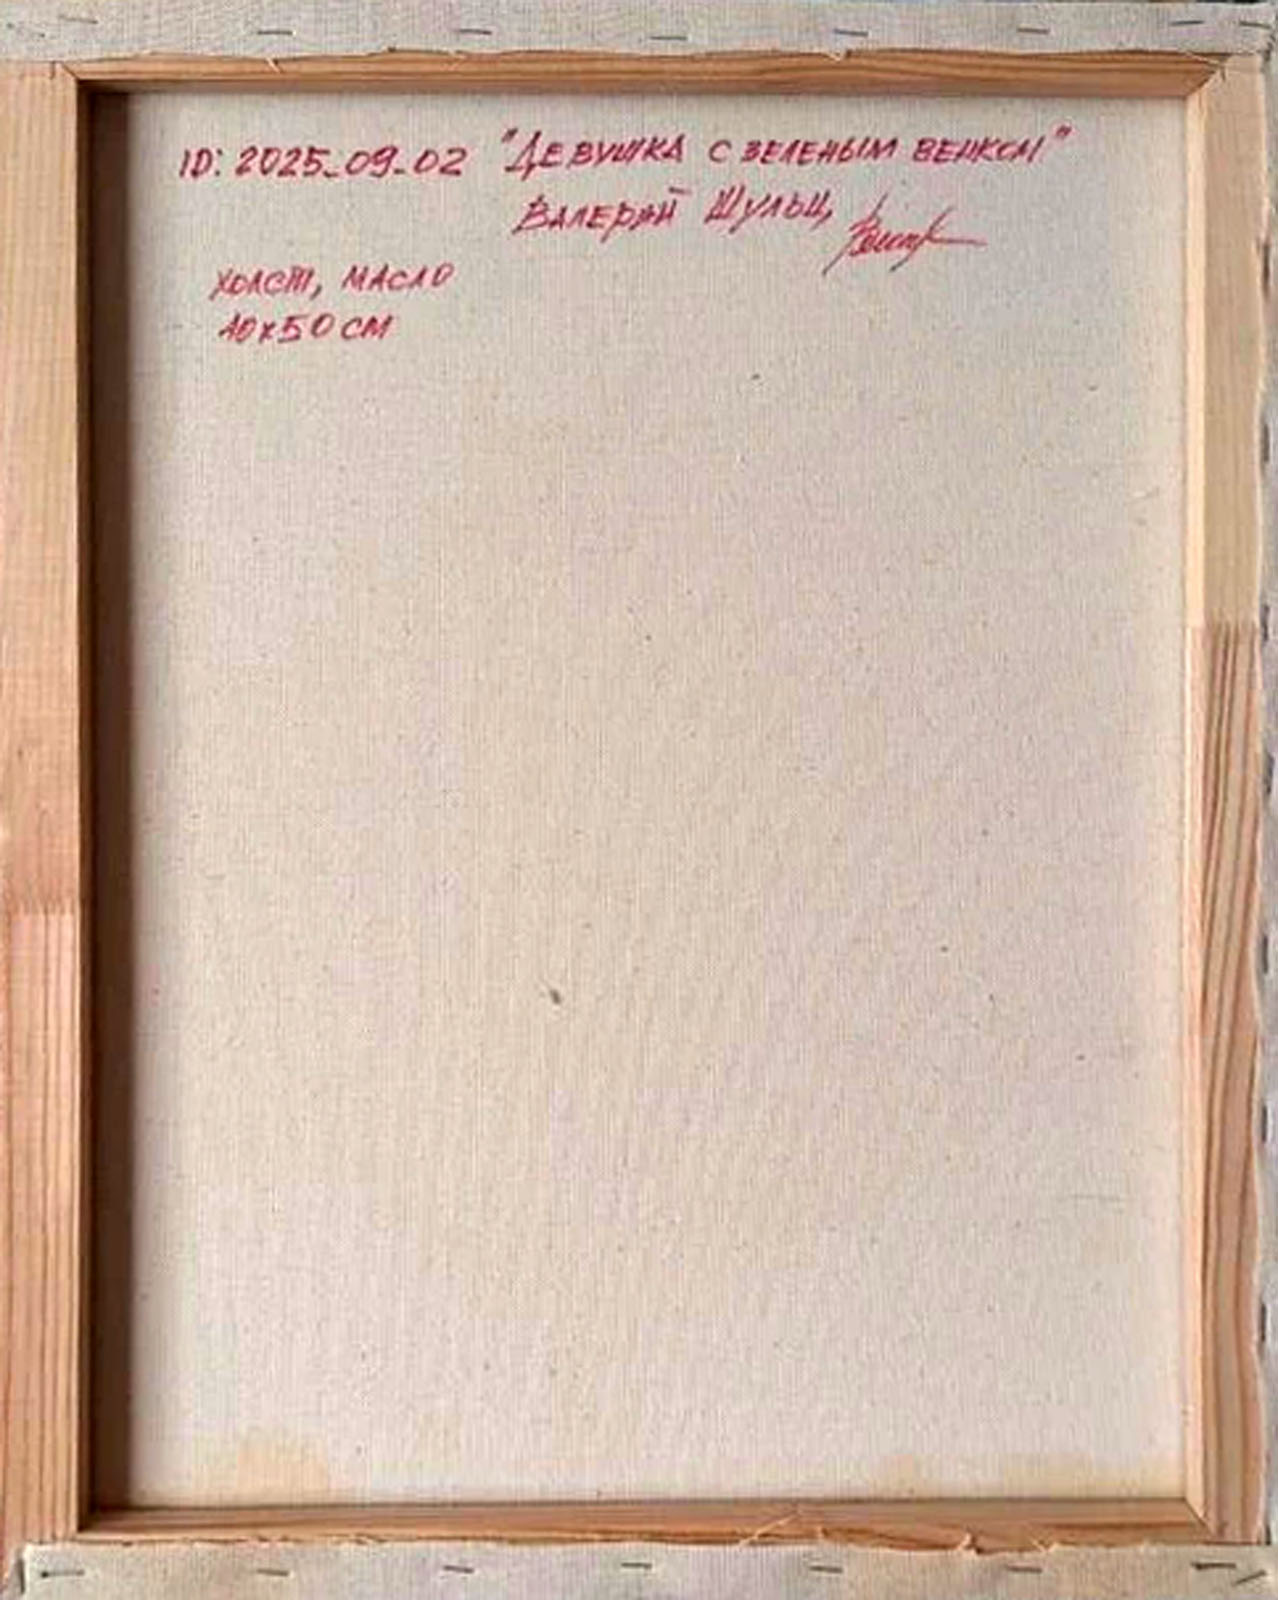 ID: 2025_09_02 "Девушка с зеленым венком"
Валерий Шульц,
холст, масло
40х50 см